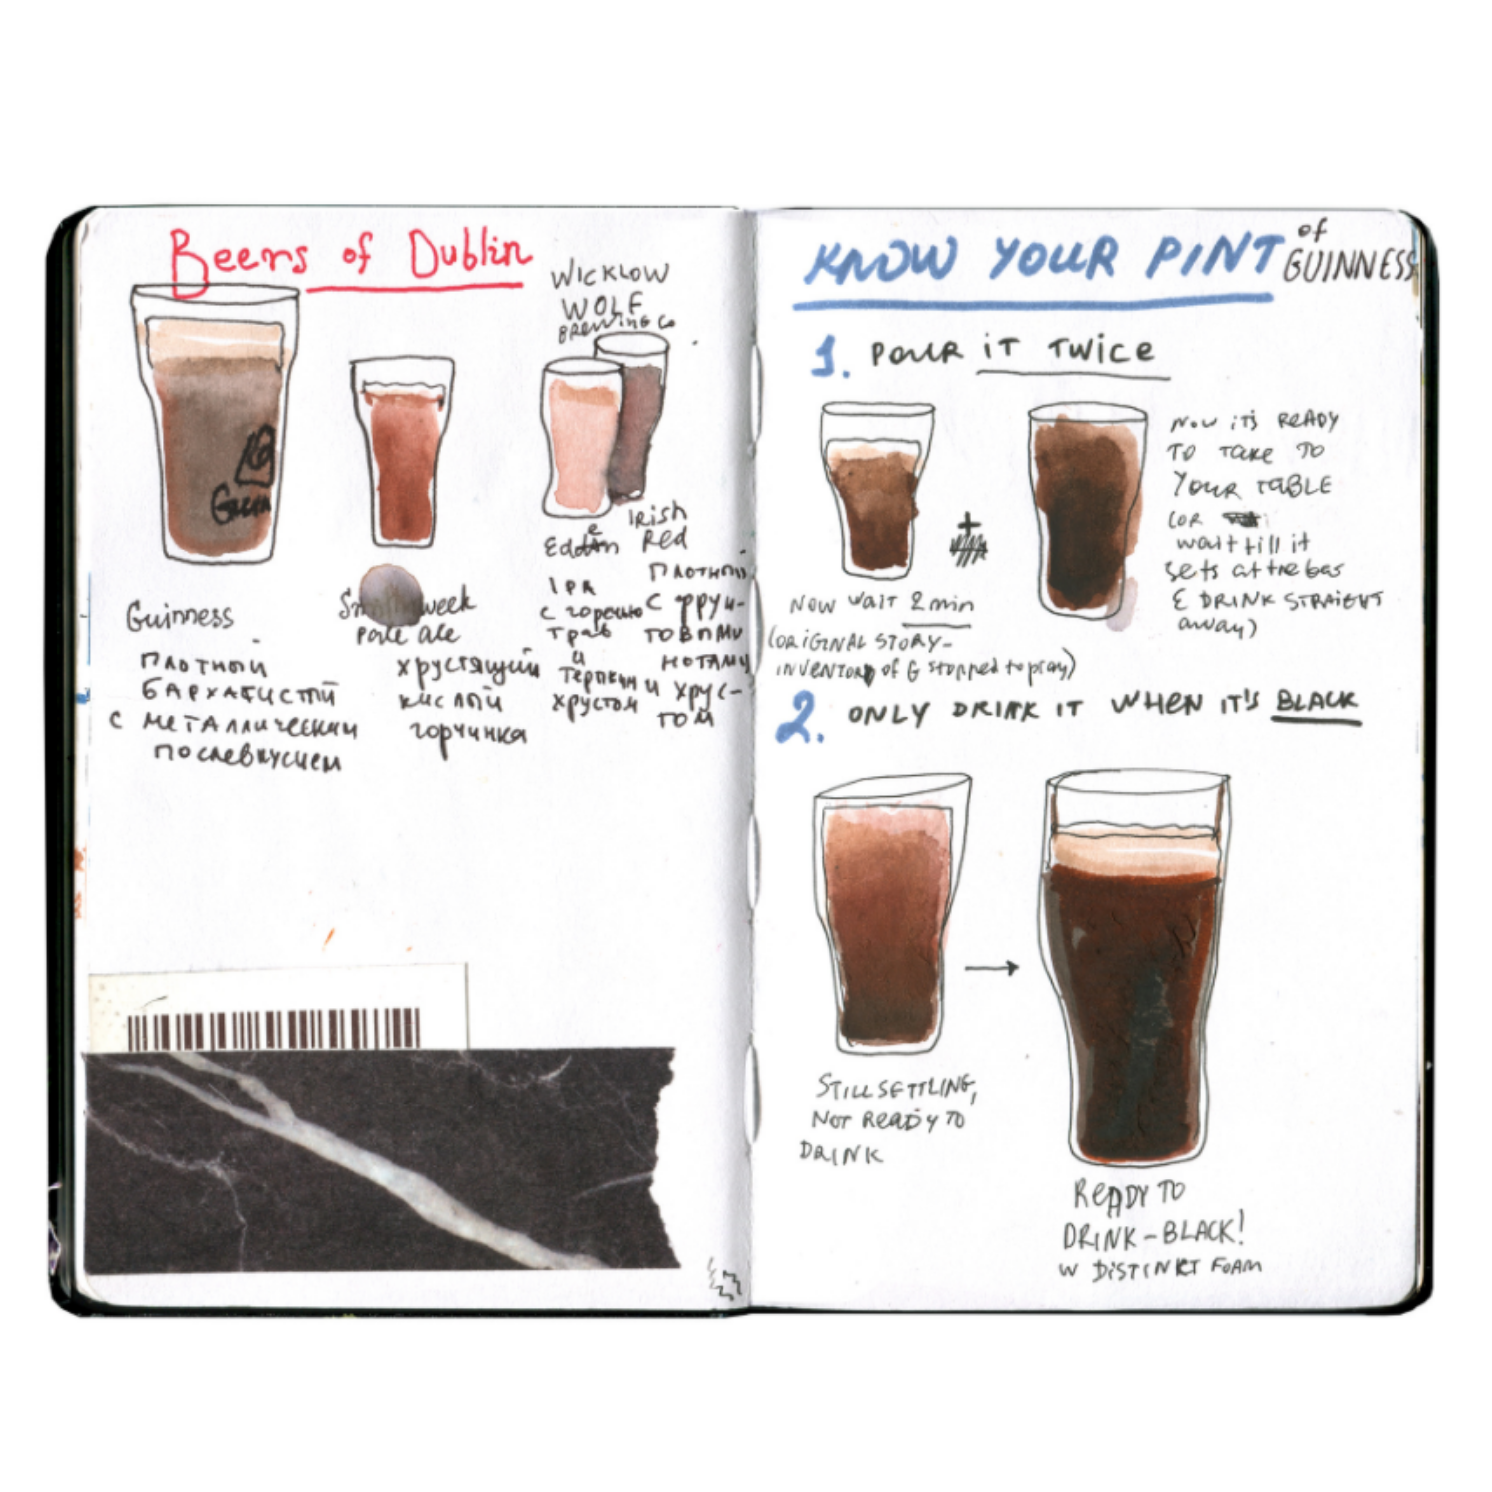 Beers of Dublin
WICKLOW
WOLF
BREWING Co
Guinness
плотный
бархатистый
с металлическим
послевкусием
week
pale ale
хрустящий
кислый
горчинка
IPA
с горечью
трав
и
терпким
хрустом
Irish
Red
плотный
с фрук-
товыми
нотами
и хрус-
том
KNOW YOUR PINT of
GUINNESS
1. POUR iT TWiCe
NOW WAIT 2 min
(ORIGINAL STORY-
INVENTOR of G stopped to pray)
NOW iTS READY
TO TAKE TO
YOUR TABLE
(OR
wait till it
sets at the bar
& DRINK STRAIGHT
away)
2. ONLY DRINK IT WHEN IT'S BLACK
STILL SETTLING,
NOT READY TO
DRINK
READY TO
DRINK-BLACK!
W DISTINKT FOAM